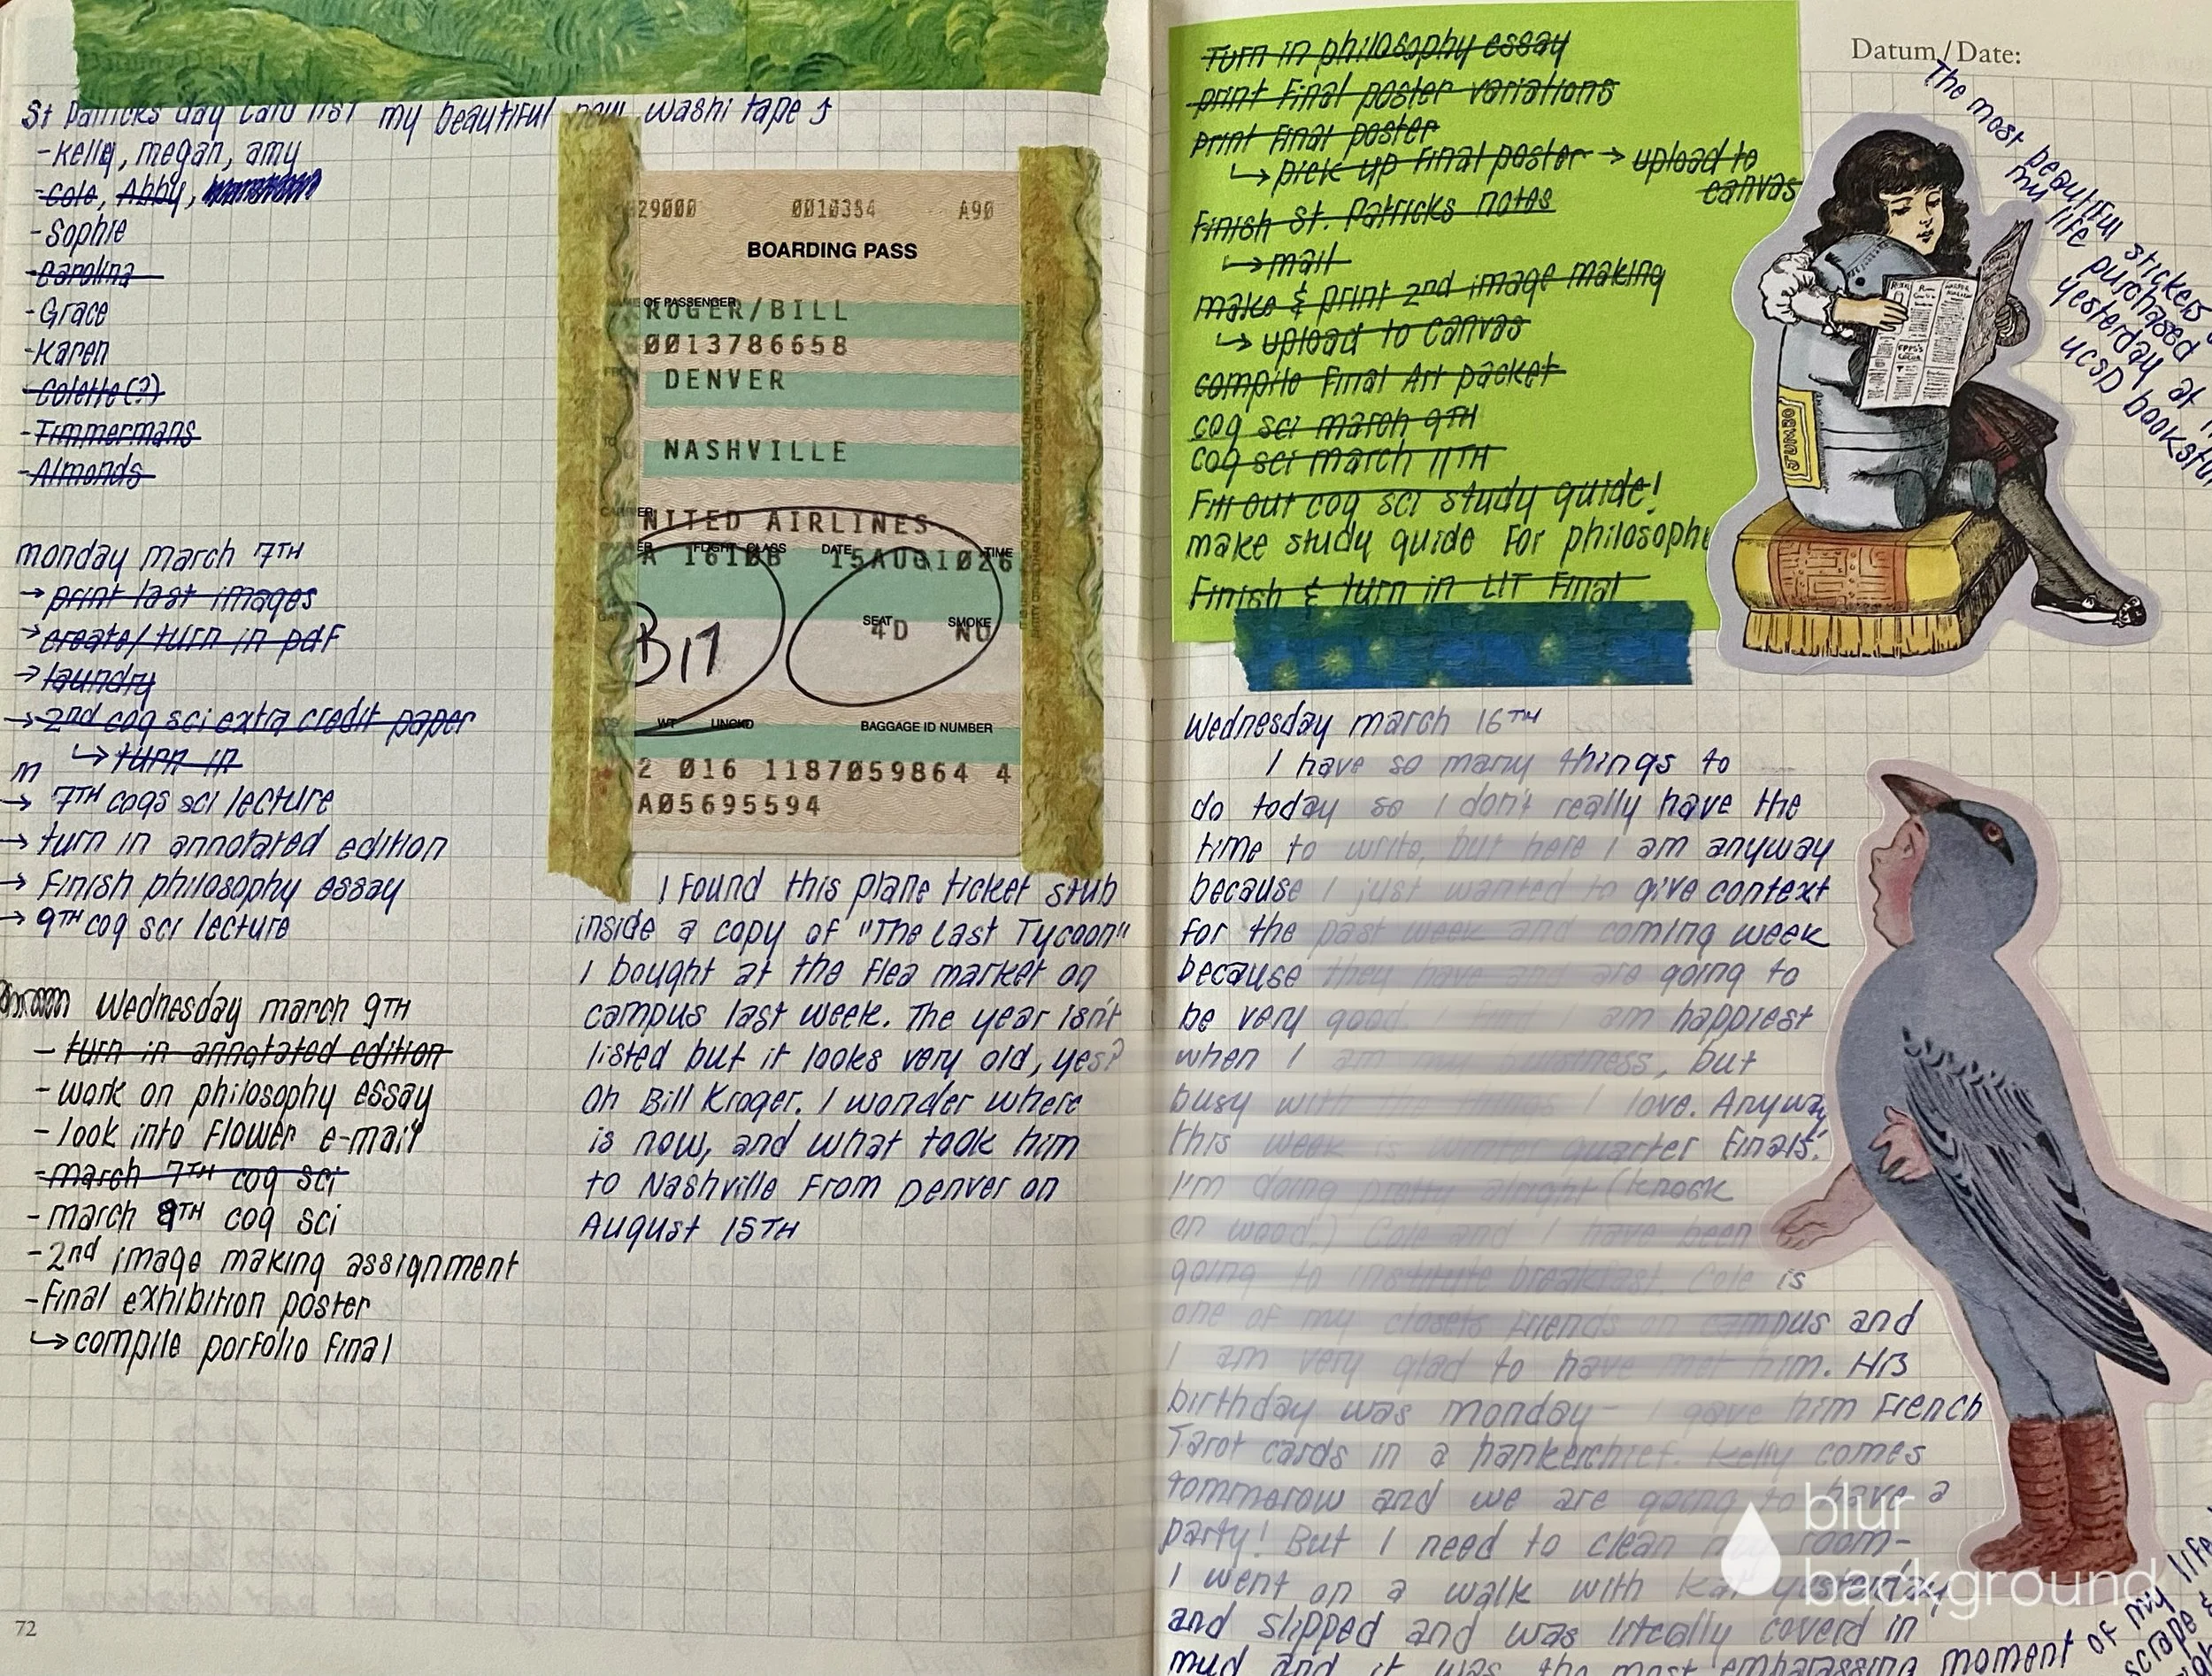 St Patricks day card list my beautiful new washi tape
-Kelly, megan, amy
-Cole, Abby,
-Sophie
-Carolina
-Grace
-Karen
-Colette(?)
-Timmermans
-Almonds
monday march 7TH
→ print last images
→ create/turn in pdf
→ laundry
→ 2nd cog sci extra credit paper
↳ turn in
m
→ 7TH cogs sci lecture
→ turn in annotated edition
→ Finish philosophy essay
→ 9TH cog sci lecture
Wednesday march 9TH
- turn in annotated edition
- work on philosophy essay
- look into Flower e-mail
- march 7TH cog sci
- march 9TH cog sci
- 2nd image making assignment
- Final exhibition poster
↳ compile porfolio final
72
29000 0010384 A90
BOARDING PASS
OF PASSENGER
ROGER/BILL
0013786658
DENVER
TO
NASHVILLE
CARRIER
NITED AIRLINES
FLIGHT CLASS DATE TIME
A 1610B 15AUG1026
GATE SEAT SMOKE
B17 4D NO
WT UNCKD BAGGAGE ID NUMBER
2 016 1187059864 4
A05695594
I Found this plane ticket stub
inside a copy of "The Last Tycoon"
I bought at the Flea market on
campus last week. The year isn't
listed but it looks very old, yes?
Oh Bill Kroger. I wonder where
is now, and what took him
to Nashville From Denver on
August 15TH
Turn in philosophy essay
print Final poster variations
print Final poster
↳ pick up Final poster → upload to
canvas
Finish St. Patricks notes
↳ mail
make & print 2nd image making
↳ upload to canvas
compile Final Art packet
cog sci march 9TH
cog sci march 11TH
Fill out cog sci study guide!
make study guide For philosophy
Finish & turn in LIT Final
Datum/Date:
The most beautiful stickers
my life purchased
yesterday at
UCSD bookstor
JUMBO
EPPS'S
COCOA
Wednesday march 16TH
I have so many things to
do today so I don't really have the
time to write, but here I am anyway
because I just wanted to give context
For the past week and coming week
because they have and are going to
be very good. am happiest
when I am busyness, but
busy with I love. Anyway,
this week is quarter Finals.
I'm doing pretty alright (knock
on wood.) Cole and I have been
going to institute breakfast. Cole is
one of my closets Friends on campus and
I am very glad to have met him. His
birthday was monday- I gave him French
Tarot cards in a hankerchief. Kelly comes
tommorow and we are going to have a
party! But I need to clean my room-
I went on a walk with yesterday
and slipped and was litcally coverd in
mud and it was the most embarassing moment of my life
scrape &
blur
background